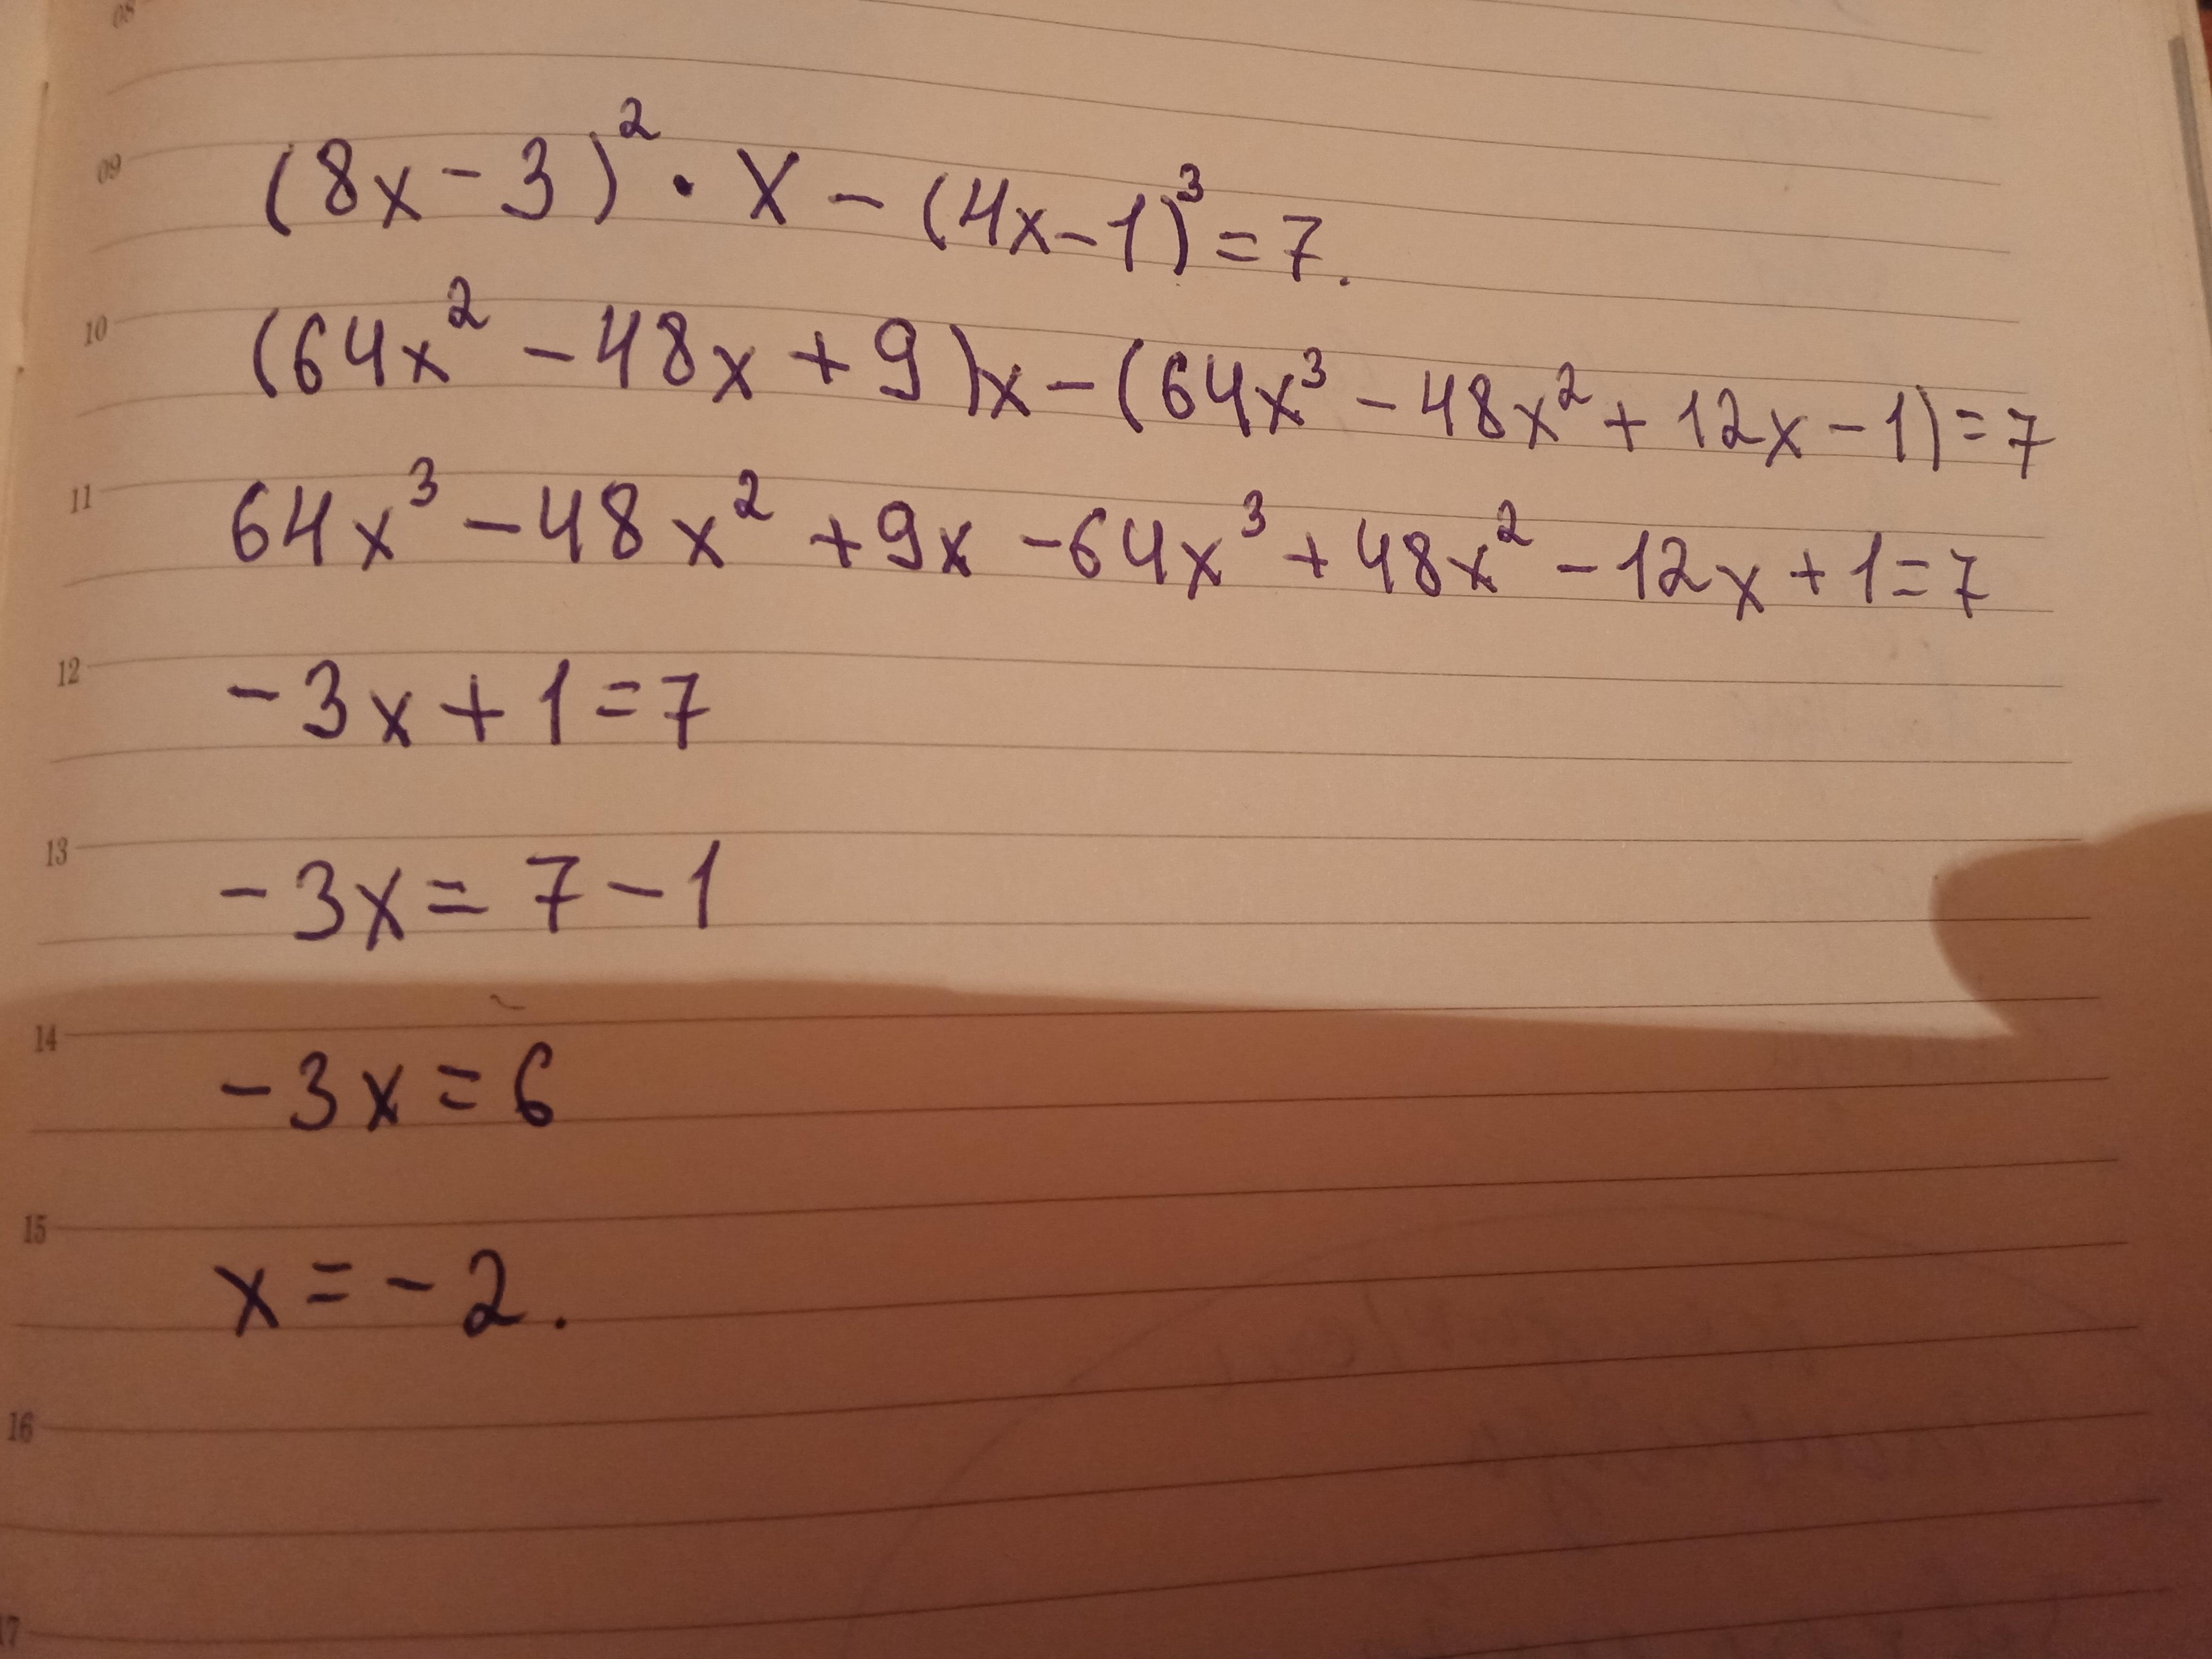 08
09 (8x-3)² · x - (4x-1)³ = 7.
10 (64x² - 48x + 9)x - (64x³ - 48x² + 12x - 1) = 7
11 64x³ - 48x² + 9x - 64x³ + 48x² - 12x + 1 = 7
12 -3x + 1 = 7
13 -3x = 7 - 1
14 -3x = 6
15 x = -2.
16
17